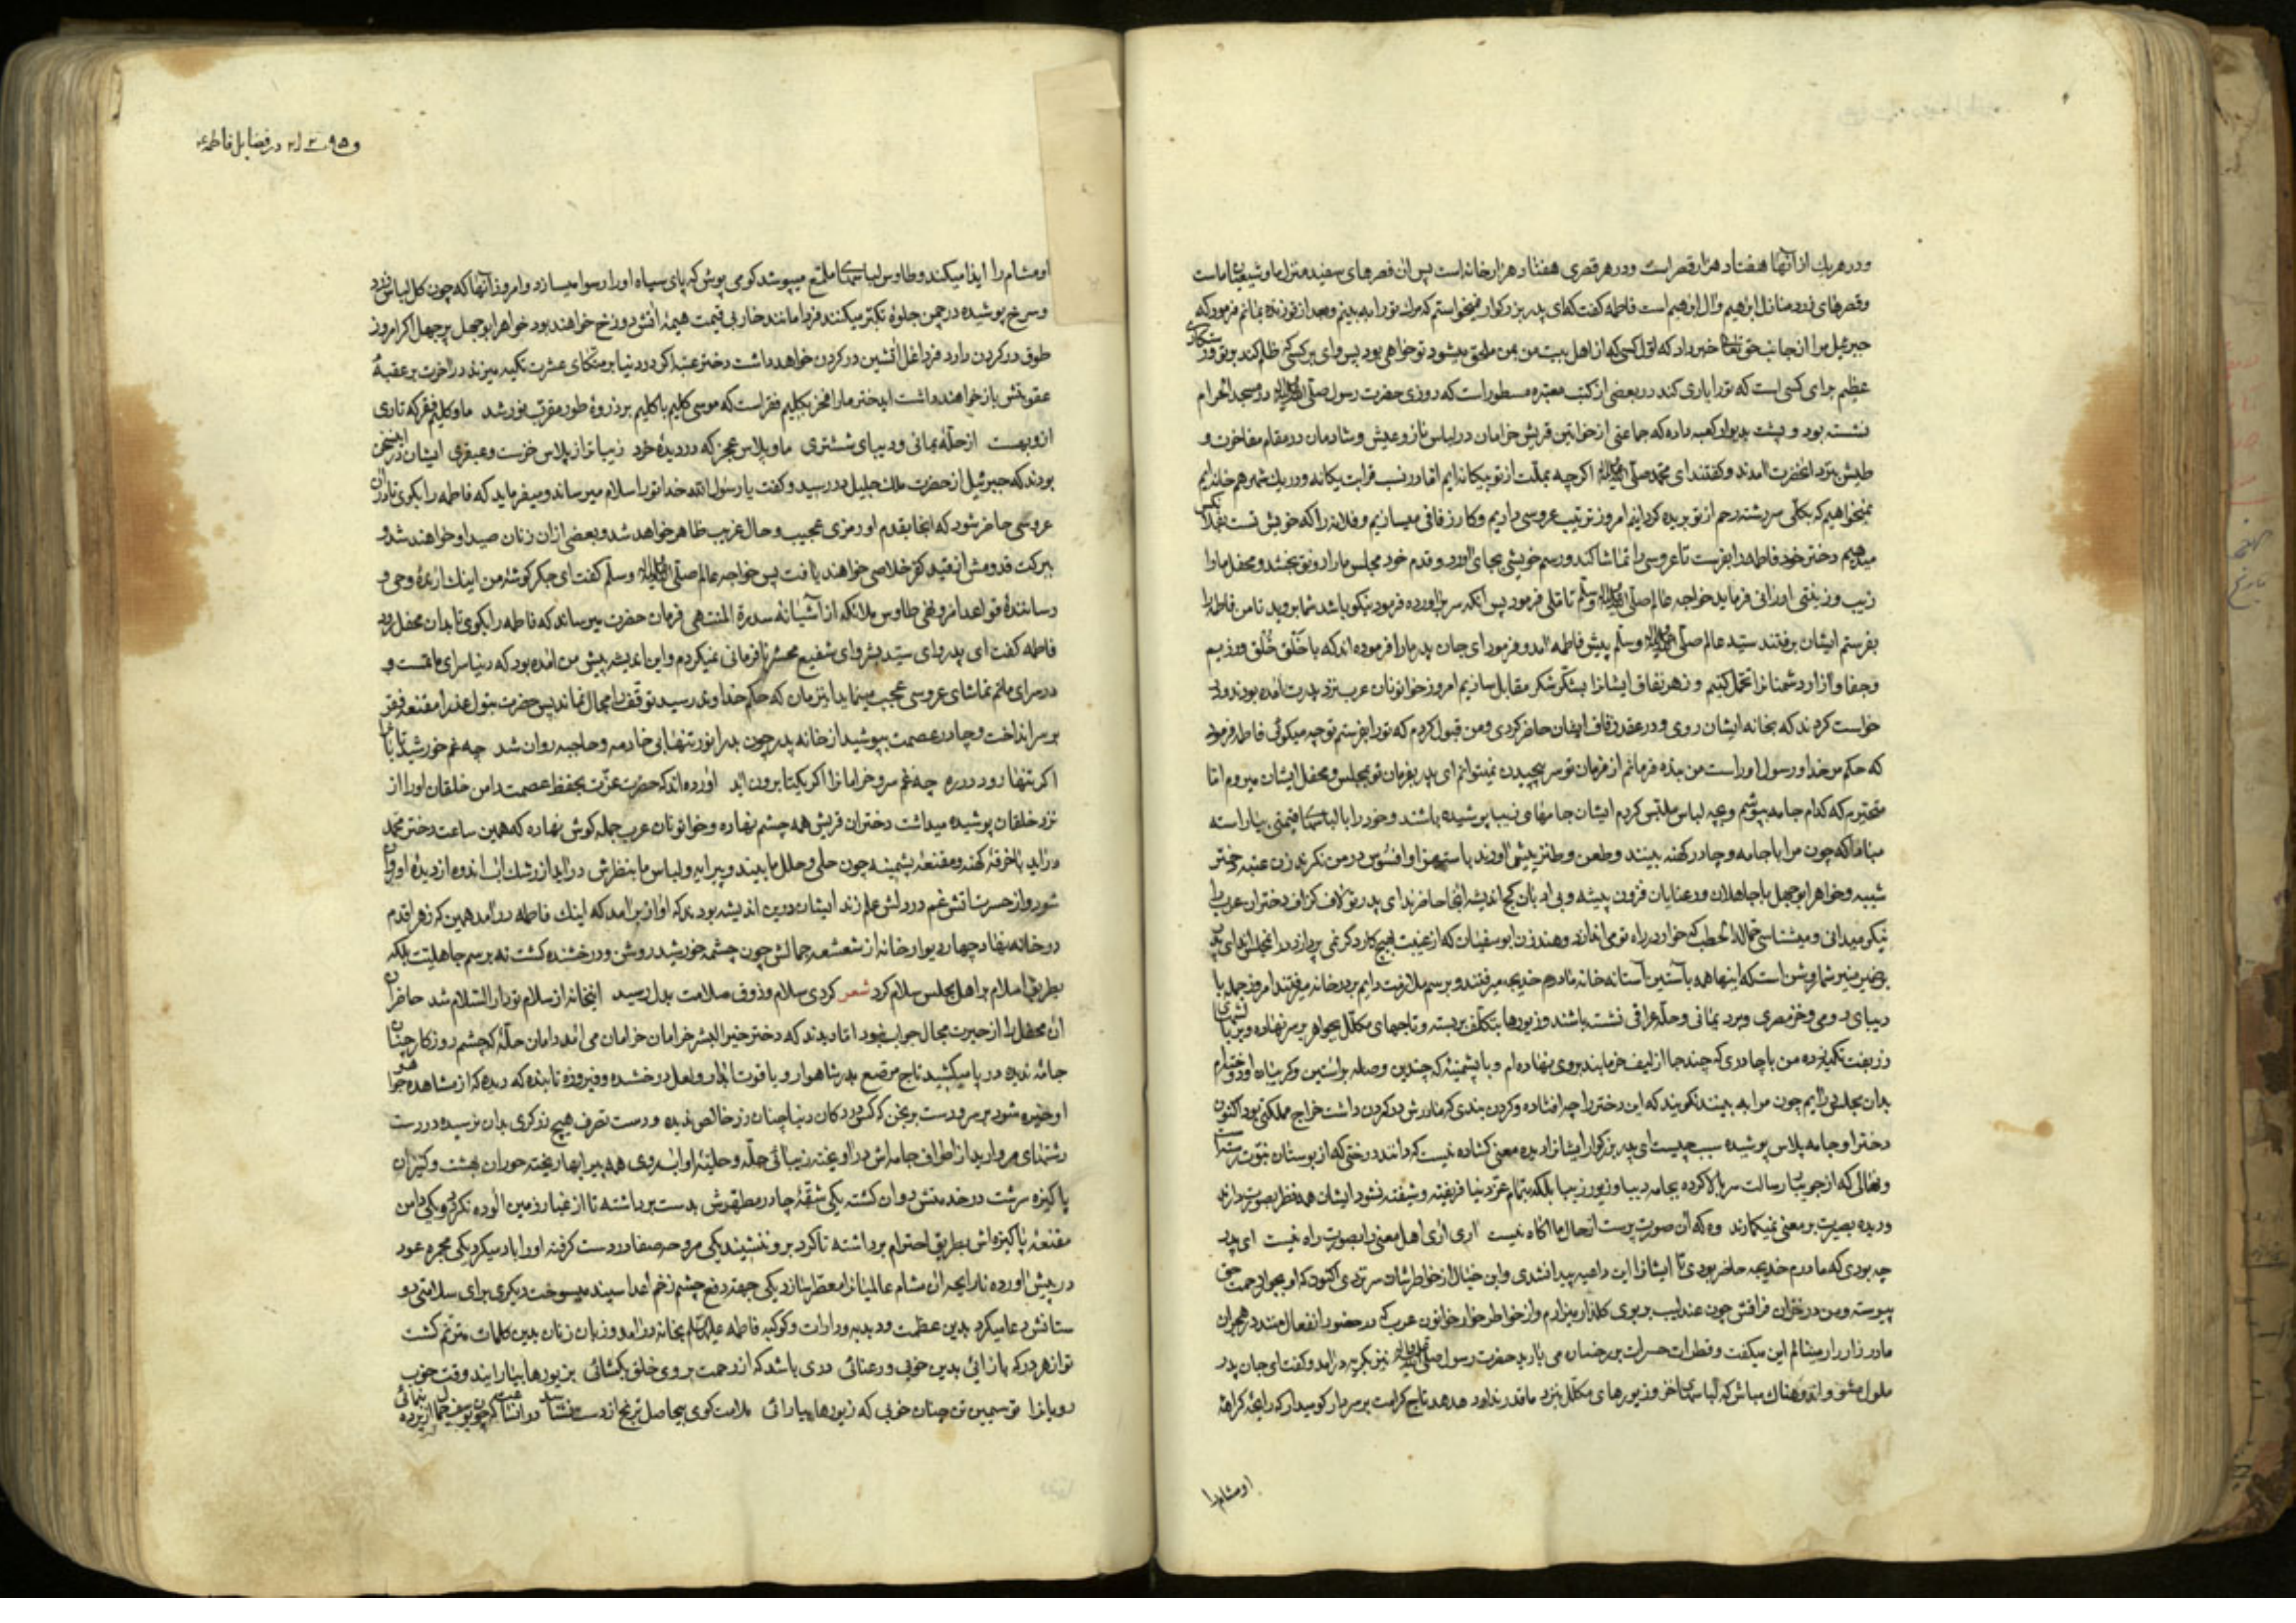 و در هر یك از آنها هفتاد هزار قصر است و در هر قصری هفتاد هزار خانه است پس ان قصرهای سفید منزل ما و شیعیان ماست
و قصرهای زرد منازل ابرهیم وال ابرهیم است فاطمه کفت که ای پدر بزرکوار نمیخواستم که مرك تو را ببینم و بعد از تو زنده بمانم فرمود که
جبرئیل مرا از جانب حق تعالی خبر داد که اول کسی که از اهل بیت من بمن ملحق میشود تو خواهی بود پس وای بر کسی که ظلم کند بر تو و رستکاری
عظیم برای کسی است که تو را یاری کند در بعضی از کتب معتبره مسطور است که روزی حضرت رسول صلی الله علیه واله در مسجد الحرام
نشسته بود و پشت بدیوار کعبه داده که جماعتی از خواتین قریش خرامان در لباس ناز و عیش و شادمان در مقام مفاخرت و
طیش نزد انحضرت امدند و کفتند ای محمد صلی الله علیه واله اکرچه بملت از تو بیکانه ایم اما در نسب قرابت یکانه و در یك شهر هم خانه ایم
نمیخواهیم که بکلی سررشته رحم از تو بریده کردانیم امروز ترتیب عروسی داریم و کار زفافی میسازیم و فلانه را که خویش تست بفلان کس
میدهیم دختر خود فاطمه را بفرست تا عروسی را تماشا کند و رسم خویشی بجای اورد و قدم خود مجلس ما را رونق بخشد و محفل ما را
زیب و زینتی ارزانی فرماید خواجه عالم صلی الله علیه واله وسلم تاملی فرمود پس انکه سر براورده فرمود نیکو باشد شما بروید تا من فاطمه را
بفرستم ایشان برفتند سید عالم صلی الله علیه واله وسلم پیش فاطمه امد و فرمود ای جان پدر ما را فرموده اند که با خلق خلق ورزیم
و جفا و ازار دشمنان را تحمل کنیم و زهر نفاق ایشانرا بشکر شکر مقابل سازیم امروز خواتونان عرب نزد پدرت امده بودند و
خواست کردند که بخانه ایشان روی و در عقد زفاف ایشان حاضر کردی و من قبول کردم که تو را بفرستم تو چه میکوئی فاطمه فرمود
که حکم من خدا و رسول او راست من بنده فرمانم از فرمان تو سر پیچیدن نمیتوانم ای پدر بفرمان تو بمجلس و محفل ایشان میروم اما
متحیرم که کدام جامه بپوشم و بچه لباس ملتبس کردم ایشان جامهای زیبا پوشیده باشند و خود را بالباسهای قیمتی بیاراسته
مبادا که چون مرا با جامه و چادر کهنه ببینند و طعن و طنز پیش اورند با ستهزا و افسوس در من نکرند زن عتبه دختر
شیبه و خواهر ابوجهل با جاهلان و رعنایان فزون پیشه و بی ادبان کج اندیشه انجا حاضرند ای پدر تو لاف کزاف دختران عرب را
نیکو میدانی و میشناسی حمالة الحطب که خوار در راه تو می اندازد و هند زن ابوسفیان که از غیبت بهیچ کار دکر نمی پردازد در انمجلس اند ای پدر
بر ضمیر منیر شما روشن است که اینها همه بآستین آستانه خانه مادرم خدیجه میرفتند و برسم ملازمت دایم بر در خانه میرفتند امروز جمله با
دیبای رومی و خز بصری و برد یمانی و حله عراقی نشسته باشند و زیورها بتکلف بر بسته و تاجهای مکلل بجواهر بر سر نهاده و بر بالشهای
زربفت تکیه زده من با چادری که چند جا از لیف خرما بند بر وی نهاده ام و با پشمینه که چندین وصله بر استین و کریبان او دوخته ام
بدان مجلس درایم چون مرا به بینند نکویند که این دختر را چه افتاده و کردن بندی که مادرش در کردن داشت خراج مملکتی بود اکنون
دختر او جامه پلاس پوشیده سبب چیست ای پدر بزرکوار ایشانرا دیده معنی کشاده نیست که دانند درختی که از بوستان نبوت رسته
و نهالی که از جویبار رسالت سر بالا کرده بجامه دیبا و زیور زیبا بلکه بتمام عز دنیا فریفته و شیفته نشود ایشان همه نظر بصورت دارند
و دیده بصیرت بر معنی نمیکمارند وه که ان صورت پرست از حال ما اکاه نیست اری اری اهل معنی را بصورت راه نیست ای پدر
چه بودی که مادرم خدیجه حاضر بودی تا ایشانرا این داعیه پیدا نشدی و این خیال از خاطرشان سر نزدی اکنون که او بجوار رحمت حق
پیوسته و من در خزان فراقش چون عندلیب بر بوی کلزار بیزارم و از خاطر خوار خواتون عرب که در حضور انفعال مندم در هجران
مادر زار زار مینالم این میکفت و قطرات حسرات بر رخسار می بارید حضرت رسول صلی الله علیه واله نیز بکریه درامد و کفت ای جان پدر
ملول مشو و اندوهناك مباش که لباسهای فاخر و زیورهای مکلل نزد ما قدر ندارد هدهد تاج کرامت بر سر دارد کو میدار که رایحه کراهة
او مشام را
در فضایل فاطمه ع
او مشام را ایذا میکند و طاوس لباسهای ملمع میپوشد کو می پوش که پای سیاه او را رسوا میسازد و امروز آنها که چون کل لباس زرد
و سرخ پوشیده در چمن جلوه تکبر میکنند فردا مانند خار بی قیمت هیمه اتش دوزخ خواهند بود خواهر ابوجهل پرجهل اکر امروز
طوق در کردن دارد فردا غل اتشین در کردن خواهد داشت دختر عتبه اکر در دنیا بر متکای عشرت تکیه میزند در اخرت بر عقبهٔ
عقوبتش باز خواهند داشت ایدختر ما را فخر بکلیم فقر است که موسی کلیم با کلیم بر ذروهٔ طور مقرب نور شد ما و کلیم فقر که تاری
ازو بهست از حلهٔ یمانی و دیبای ششتری ما و پلاس عجز که در دیدهٔ خرد زیباتر از پلاس خزست و عبقری ایشان در این سخن
بودند که جبرئیل از حضرت ملك جلیل در رسید و کفت یا رسول الله خدا تو را سلام میرساند و میفرماید که فاطمه را بکوی تا دران
عروسی حاضر شود که انجا بقدم او رمزی عجیب و حال غریب ظاهر خواهد شد و بعضی از ان زنان صید او خواهند شد و
ببرکت قدومش از قید کفر خلاصی خواهند یافت پس خواجه عالم صلی الله علیه واله وسلم کفت ای جکر کوشهٔ من اینك ارندهٔ وحی و
رسانندهٔ قواعد امر و نهی طاوس ملائکه از آشیانه سدرة المنتهی فرمان حضرت میرساند که فاطمه را بکوی تا بدان محفل رود
فاطمه کفت ای پدر وای سید بشر وای شفیع محشر نافرمانی نمیکردم و این اندیشه پیش من امده بود که دنیا سرای ماتمست و
در سرای ماتم تماشای عروسی عجب مینماید اینزمان که حکم خداوندی رسید توقف را مجال نماند پس حضرت بتول عذرا مقنعه فقر
بر سر انداخت و چادر عصمت بپوشید از خانه پدر چون بدر انور تنها بی خادمه و حاجبه روان شد چه غم خورشید تابان را
اکر تنها رود در ره چه غم سرو خرامانرا اکر یکتا برون اید اورده اند که حضرت عزت بحفظ عصمت دامن خلقان او را از
نزد خلقان پوشیده میداشت دختران قریش همه چشم نهاده و خواتونان عرب جمله کوش نهاده که همین ساعت دختر محمد
دراید با خرقهٔ کهنه و مقنعهٔ پشمینه چون حلی و حلل ما بیند و پیرایه و لباس ما بنظرش دراید از رشك اب اندوه از دیدهٔ او روان
شود و از حسرت اتش غم در دلش علم زند ایشان درین اندیشه بودند که اواز برامد که اینك فاطمه درامد همین که زهرا قدم
در خانه نهاد چهار دیوار خانه از شعشعه جمالش چون چشمه خورشید روشن و درخشنده کشت نه برسم جاهلیت بلکه
بطریق اسلام بر اهل مجلس سلام کرد شعر کردی سلام و ذوق سلامت بدل رسید اینخانه از سلام تو دار السلام شد حاضران
ان محفل را از حیرت مجال جواب نبود اما دیدند که دختر خیر البشر خرامان خرامان می امد دامان حلهٔ که چشم روزکار چنان
جامهٔ ندیده در پا میکشید تاج مرصع بدر شاهوار و یاقوت ابدار و لعل درخشده و فیروزه تابنده که دیده که از مشاهده جواهر
او خیره شود بر سر و دست برنجن که کس در دکان دنیا چنان زر خالص ندیده و دست تصرف هیچ زرکری بدان نرسیده در دست
رشتهای مروارید از اطراف جامه اش دراویخته زیبائی حله و حلیهٔ او ابروی همه پیرایها ریخته حوران بهشت و کنیزان
پاکیزه سرشت در خدمتش دوان کشته یکی شقهٔ چادر مطهرش بدست برداشته تا از غبار زمین الوده نکردد و یکی دامن
مقنعهٔ پاکیزه اش بطریق احترام برداشته تا کرد بر و ننشیند یکی مروحه صفا در دست کرفته او را باد میکرد یکی مجمره عود
در پیش اورده تا رایحه ان مشام عالمیانرا معطر سازد یکی جهة دفع چشم زخم اعدا سپند میسوخت دیکری برای سلامتی دو
ستانش دعا میکرد بدین عظمت و دبدبه و دارات و کوکبه فاطمه علیها السلام بخانه درامد و زبان زنان بدین کلمات مترنم کشت
تو از هر در که بازائی بدین خوبی و رعنائی دری باشد که از رحمت بروی خلق بکشائی بزیورها بیارایند وقت خوب
رویانرا تو سیمین تن چنان خوبی که زیورها بیارائی ملامت کوی بیحاصل ترنج از دست نشناسد در انساعت که چون یوسف جمال از پرده بنمائی